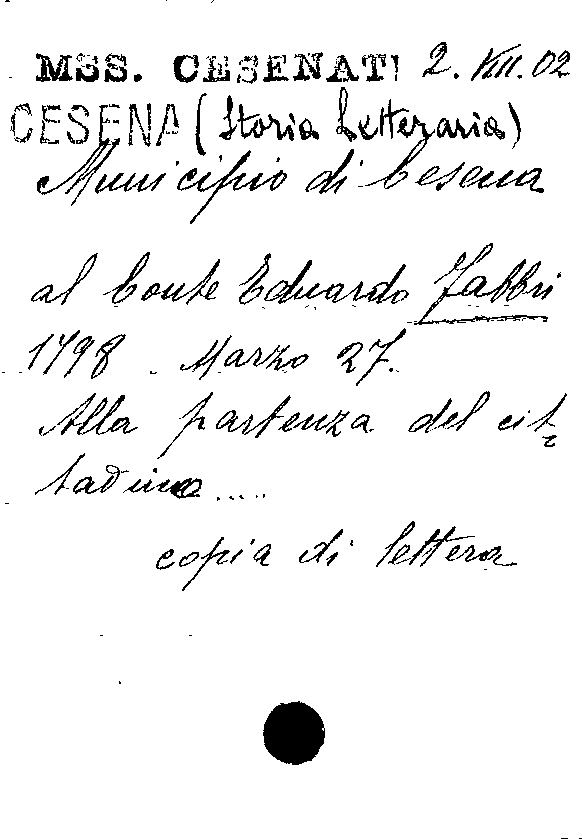 MSS. CESENATI 2. VIII. 02
CESENA (Storia Letteraria)
Municipio di Cesena
al Conte Eduardo Fabbri
1798 Marzo 27.
Alla partenza del cit-
tadino.....
copia di lettera